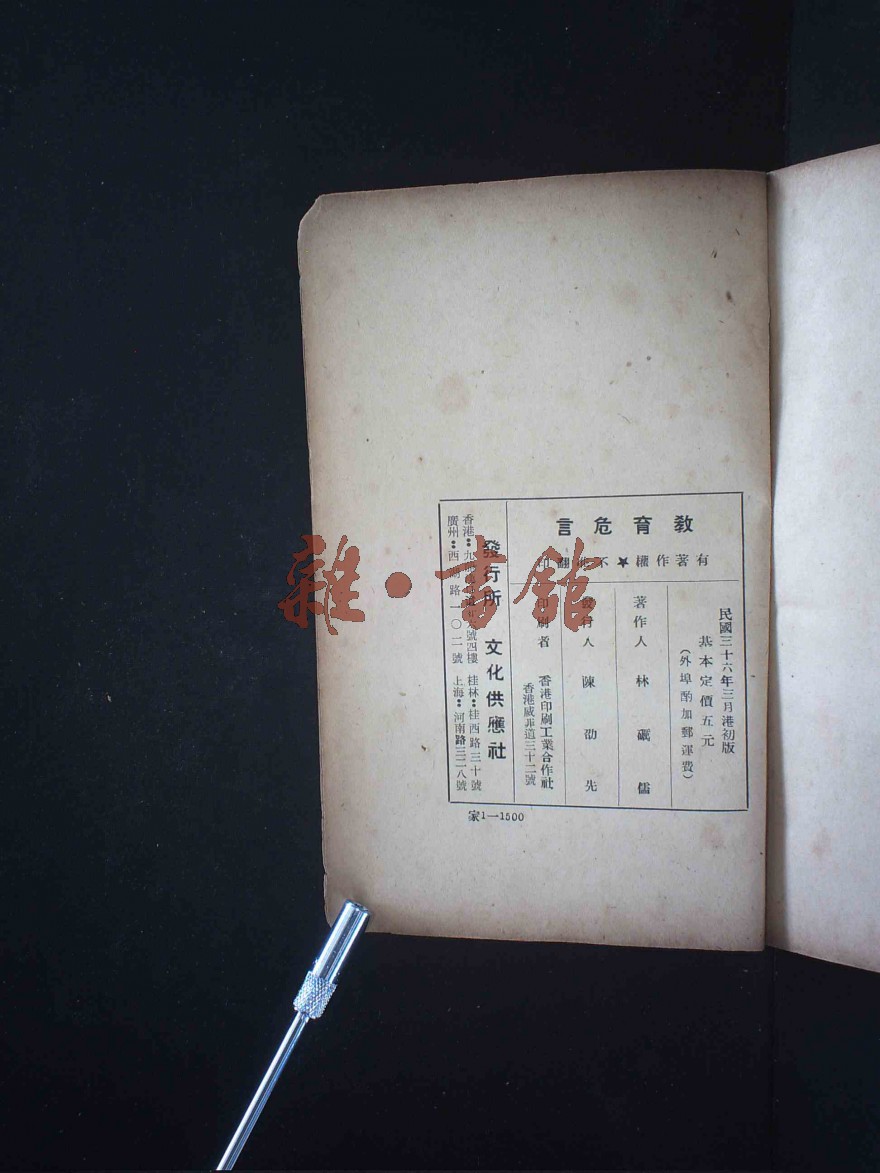 教育危言
有著作權★不准翻印
民國三十六年三月港初版
基本定價五元
(外埠酌加郵運費)
著作人 林礪儒
發行人 陳劭先
印刷者 香港印刷工業合作社
香港威菲道三十二號
發行所 文化供應社
香港:九 號四樓 桂林:桂西路三十號
廣州:西湖路一〇二號 上海:河南路三二八號
家1—1500
雜·書館